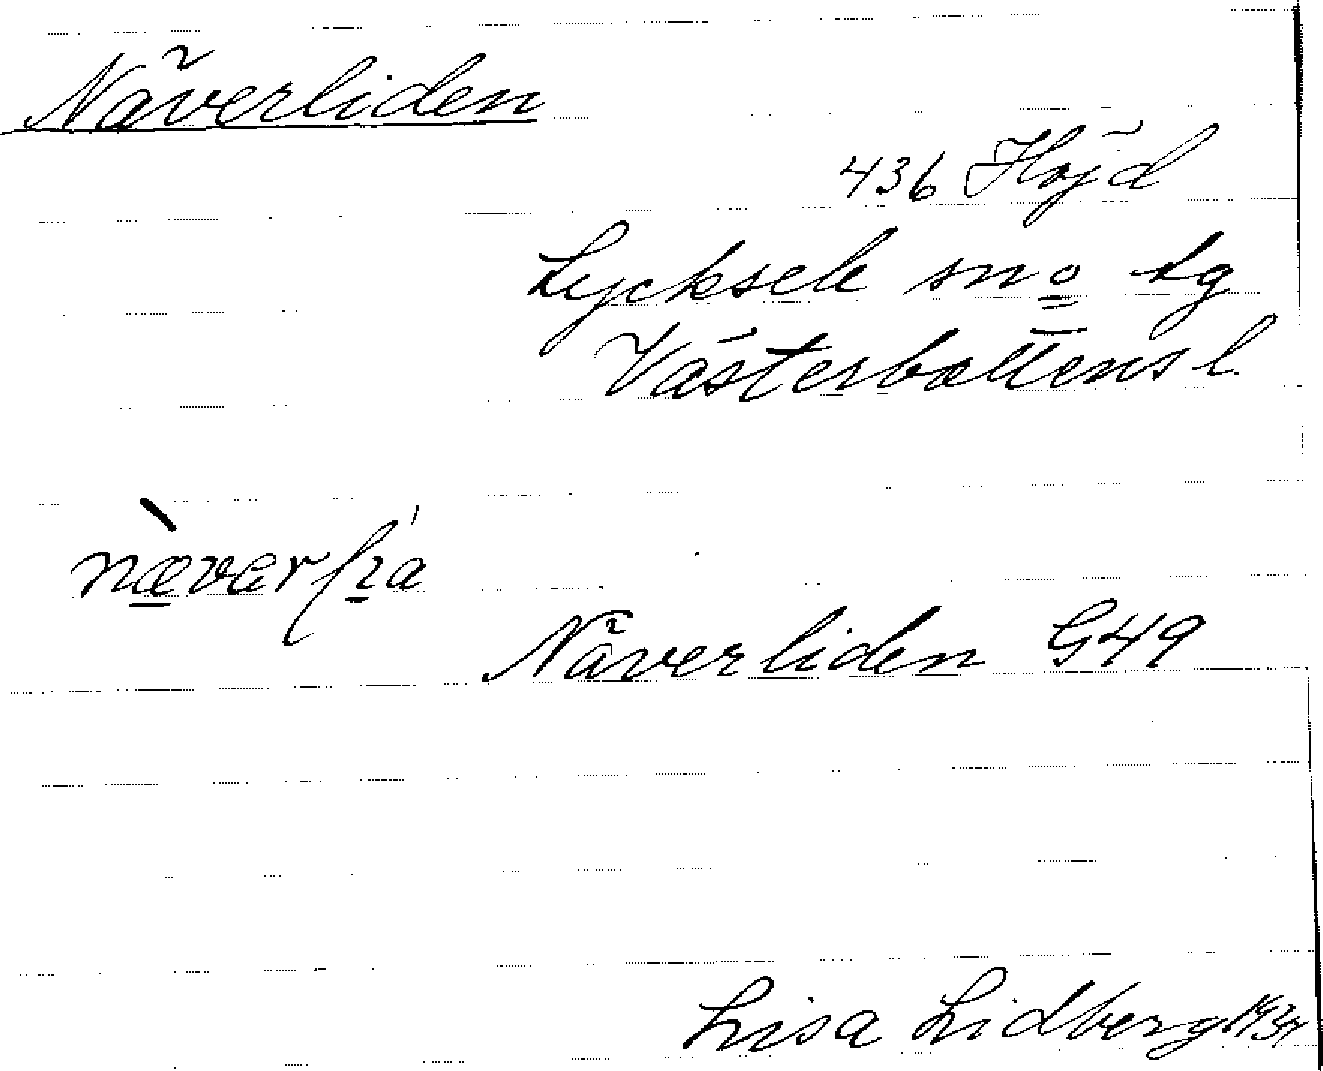 Näverliden
436 Höjd
Lycksele sn o tg
Västerbottens l.
Näverliden G49
Lisa Lidberg 1934